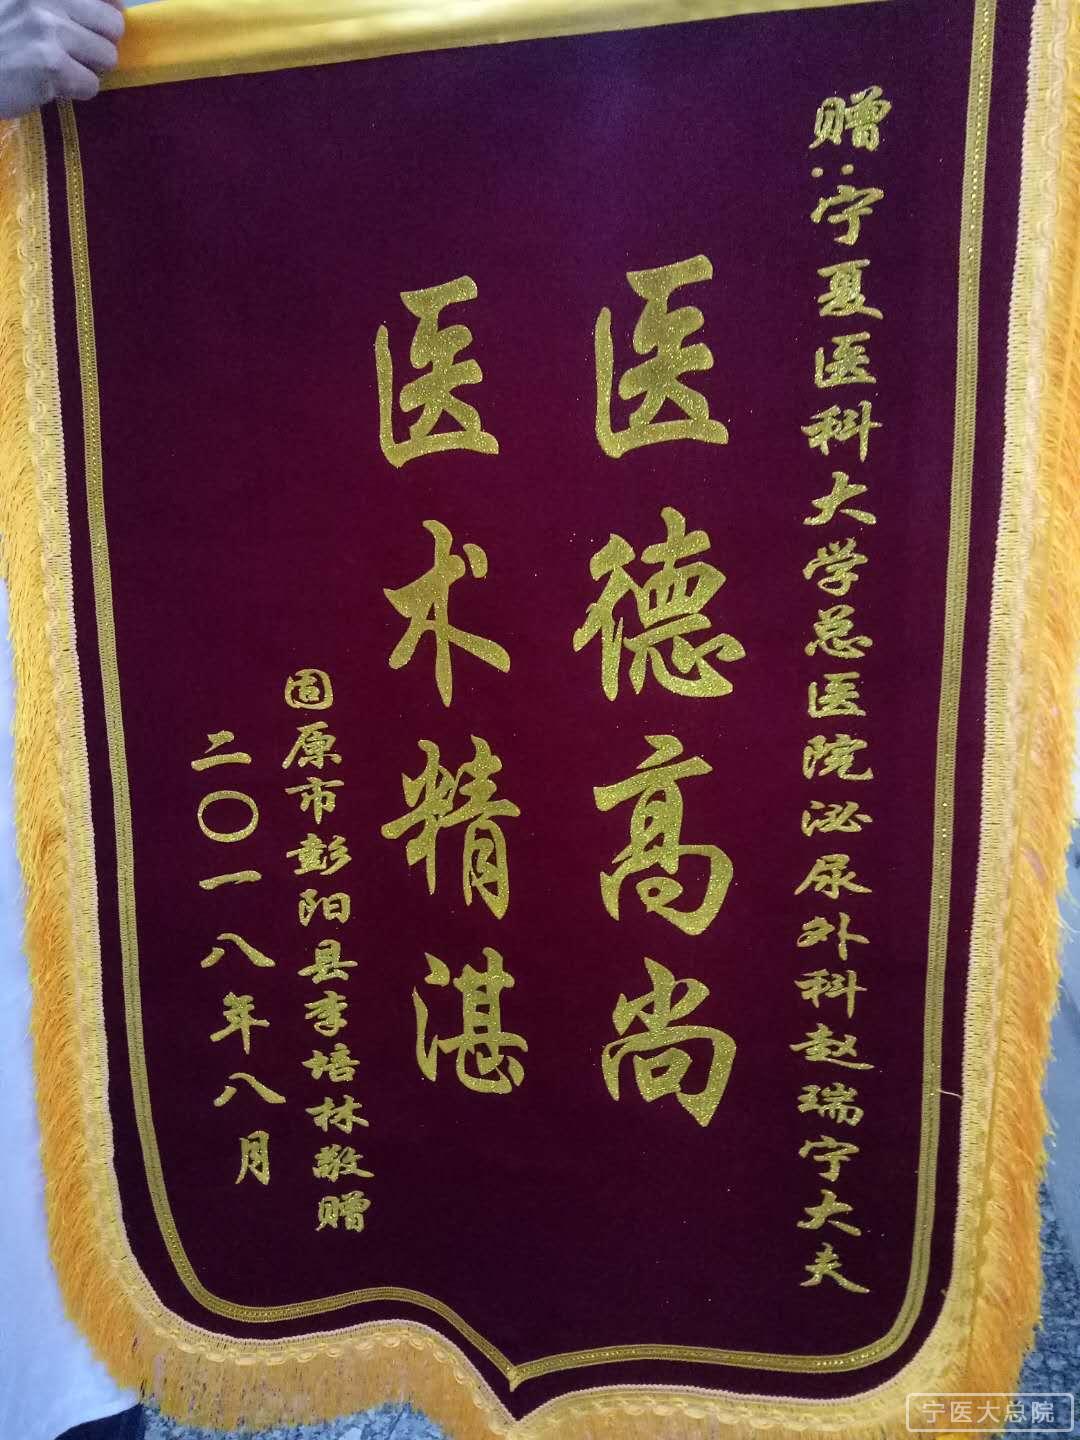 赠:宁夏医科大学总医院泌尿外科赵瑞宁大夫
医德高尚
医术精湛
固原市彭阳县李培林敬赠
二〇一八年八月
宁医大总院